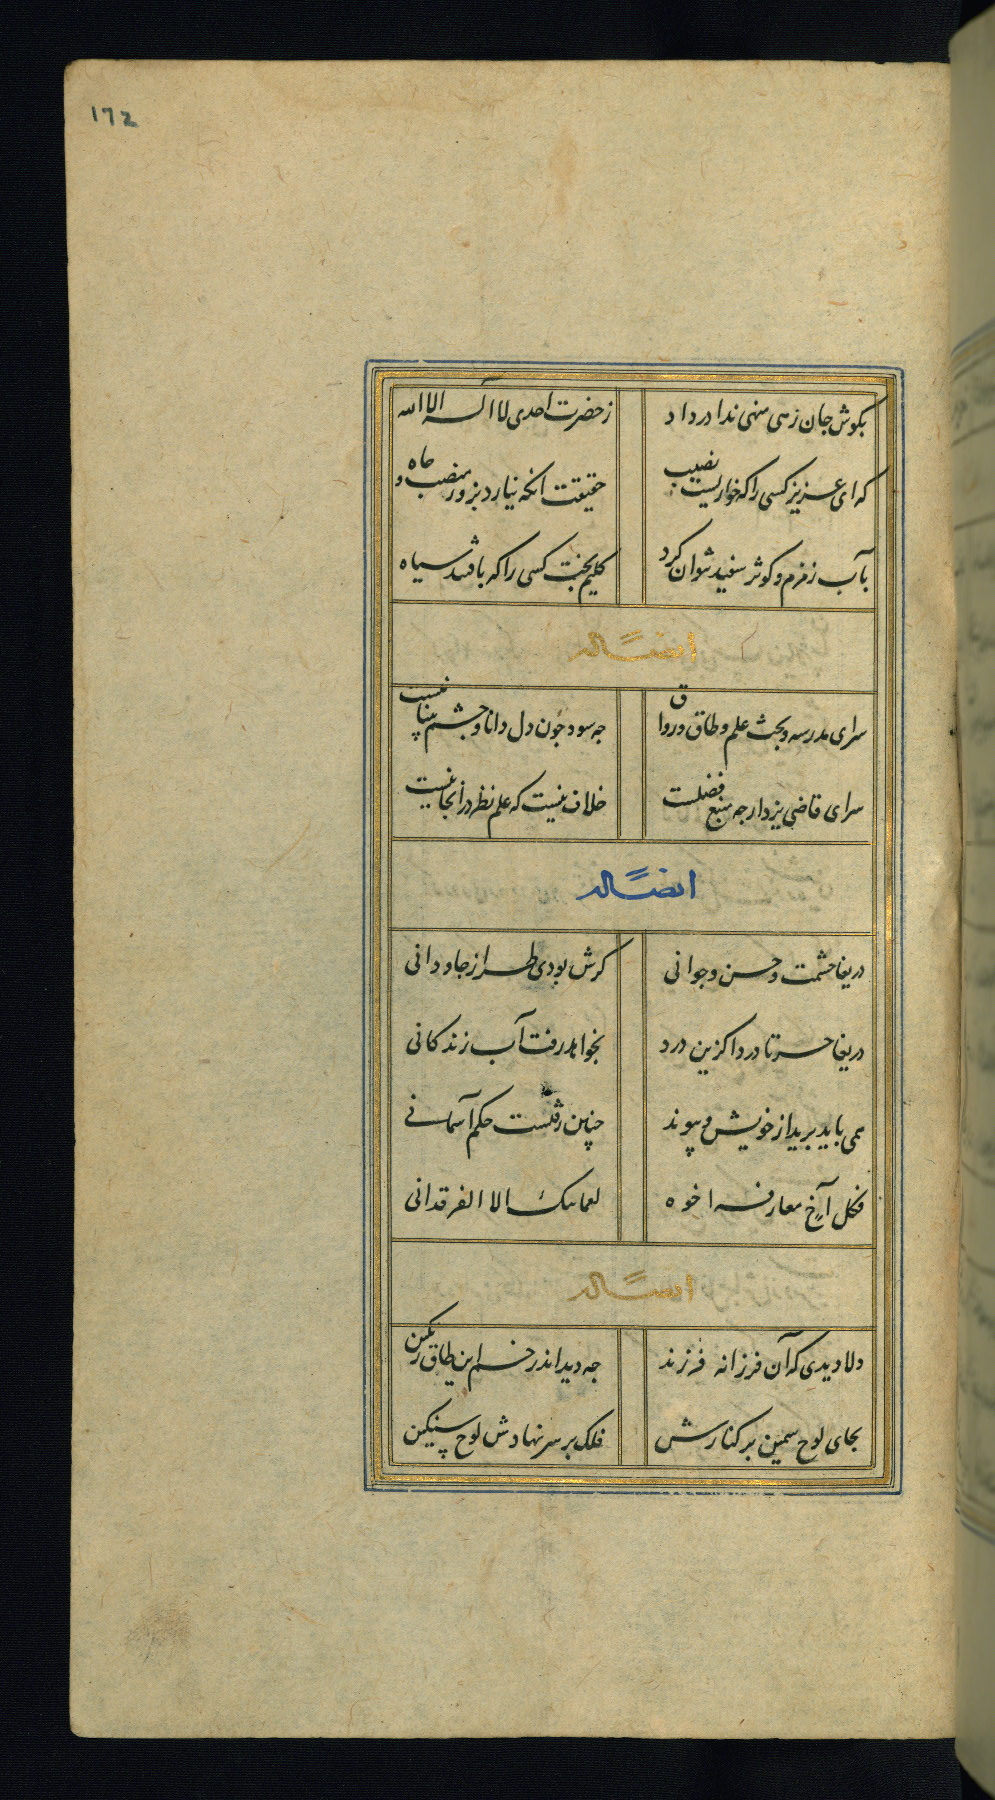 ۱۷۲
بکوش جان زهی منهی ندا در داد
ز حضرت احدی لا اله الا الله
که ای عزیز کسی را که خواریست نصیب
حقیقت انکه نیارد بزور منصب و جاه
بآب زمزم و کوثر سفید نتوان کرد
کلیم بخت کسی را که بافتند سیاه
ایضًا له
سرای مدرسه و بحث علم و طاق و رواق
جه سود جون دل دانا و جشم بینا نیست
سرای قاضی یزد ارجه منبع فضلست
خلاف نیست که علم نظر در انجا نیست
ایضًا له
دریغا حشمت و حسن و جوانی
کرش بودی طراز جاودانی
دریغا حسرتا دردا کزین درد
بخواهد رفت آب زندکانی
همی باید برید از خویش و پیوند
چنین رفتست حکم آسمانی
فکل اخ مفارقه اخوه
لعمر ابیک الا الفرقدانی
ایضًا له
دلا دیدی که آن فرزانه فرزند
جه دید اندر خم این طاق رنکین
بجای لوح سیمین بر کنارش
فلک بر سر نهادش لوح سنکین